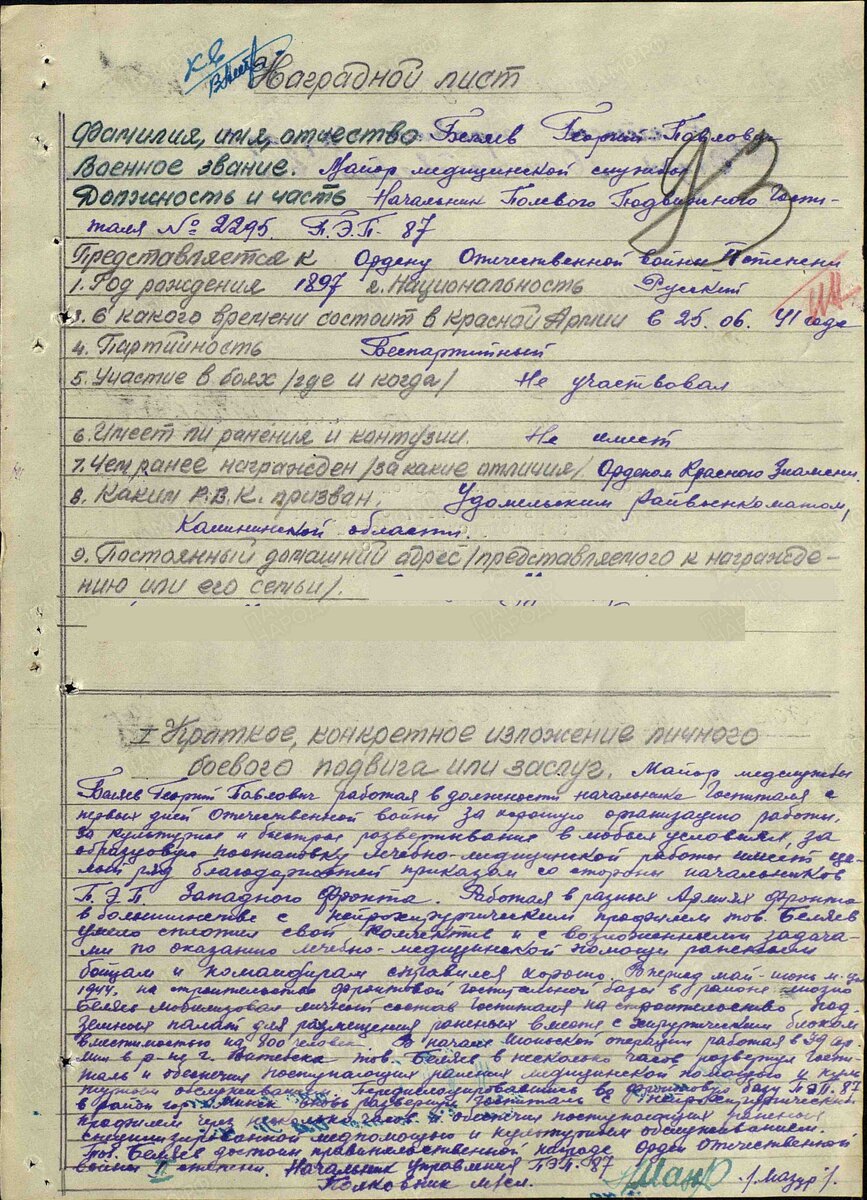 Наградной лист
Фамилия, имя, отчество Беляев Георгий Павлович
Военное звание. Майор медицинской службы
Должность и часть Начальник Полевого Подвижного Госпи-
таля № 2295. П.Э.П. 87
Представляется к Ордену Отечественной войны II степени
1. Год рождения 1897 2. Национальность Русский
3. С какого времени состоит в Красной Армии С 25. 06. 41 года
4. Партийность Беспартийный
5. Участие в боях /где и когда/ Не участвовал
6. Имеет ли ранения и контузии. Не имеет
7. Чем ранее награжден /за какие отличия/ Орденом Красного Знамени.
8. Каким Р.В.К. призван. Удомельским райвоенкоматом,
Калининской области.
9. Постоянный домашний адрес /представляемого к награжде-
нию или его семьи/.
I Краткое, конкретное изложение личного
боевого подвига или заслуг. Майор медслужбы
Беляев Георгий Павлович работая в должности начальника Госпиталя с
первых дней Отечественной войны за хорошую организацию работы.
За культурное и быстрое развертывание в любых условиях, за
образцовую постановку лечебно-медицинской работы имеет це-
лый ряд благодарностей приказом со стороны начальников
П.Э.П. Западного Фронта. Работая в разных Армиях фронта
в большинстве с нейрохирургическим профилем тов. Беляев
умело сплотил свой коллектив и с возложенными задача-
ми по оказанию лечебно-медицинской помощи раненым
бойцам и командирам справился хорошо. В период май-июнь м-цы
1944. на строительстве фронтовой госпитальной базы в районе Лиозно
Беляев мобилизовал личный состав Госпиталя на строительство под-
земных палат для размещения раненых вместе с хирургическим блоком
вместимостью на 800 человек. В начале Июньской операции работая в 39 ар-
мии в р-не г. Витебска тов. Беляев в несколько часов развернул Госпи-
таль и обеспечил поступающих ранених медицинской помощью и куль-
турным обслуживанием. Передислоцировавшись во фронтовую базу ПЭП 87
в район гор. Минск вновь развернул Госпиталь с нейрохирургическим
профилем через несколько часов и обеспечил поступающих раненых
специализированной медпомощью и культурным обслуживанием.
Тов. Беляев достоин правительственной награде Орден Отечественной
войны II степени. Начальник Управления ПЭП. 87
Полковник м/сл. /Мазур/.